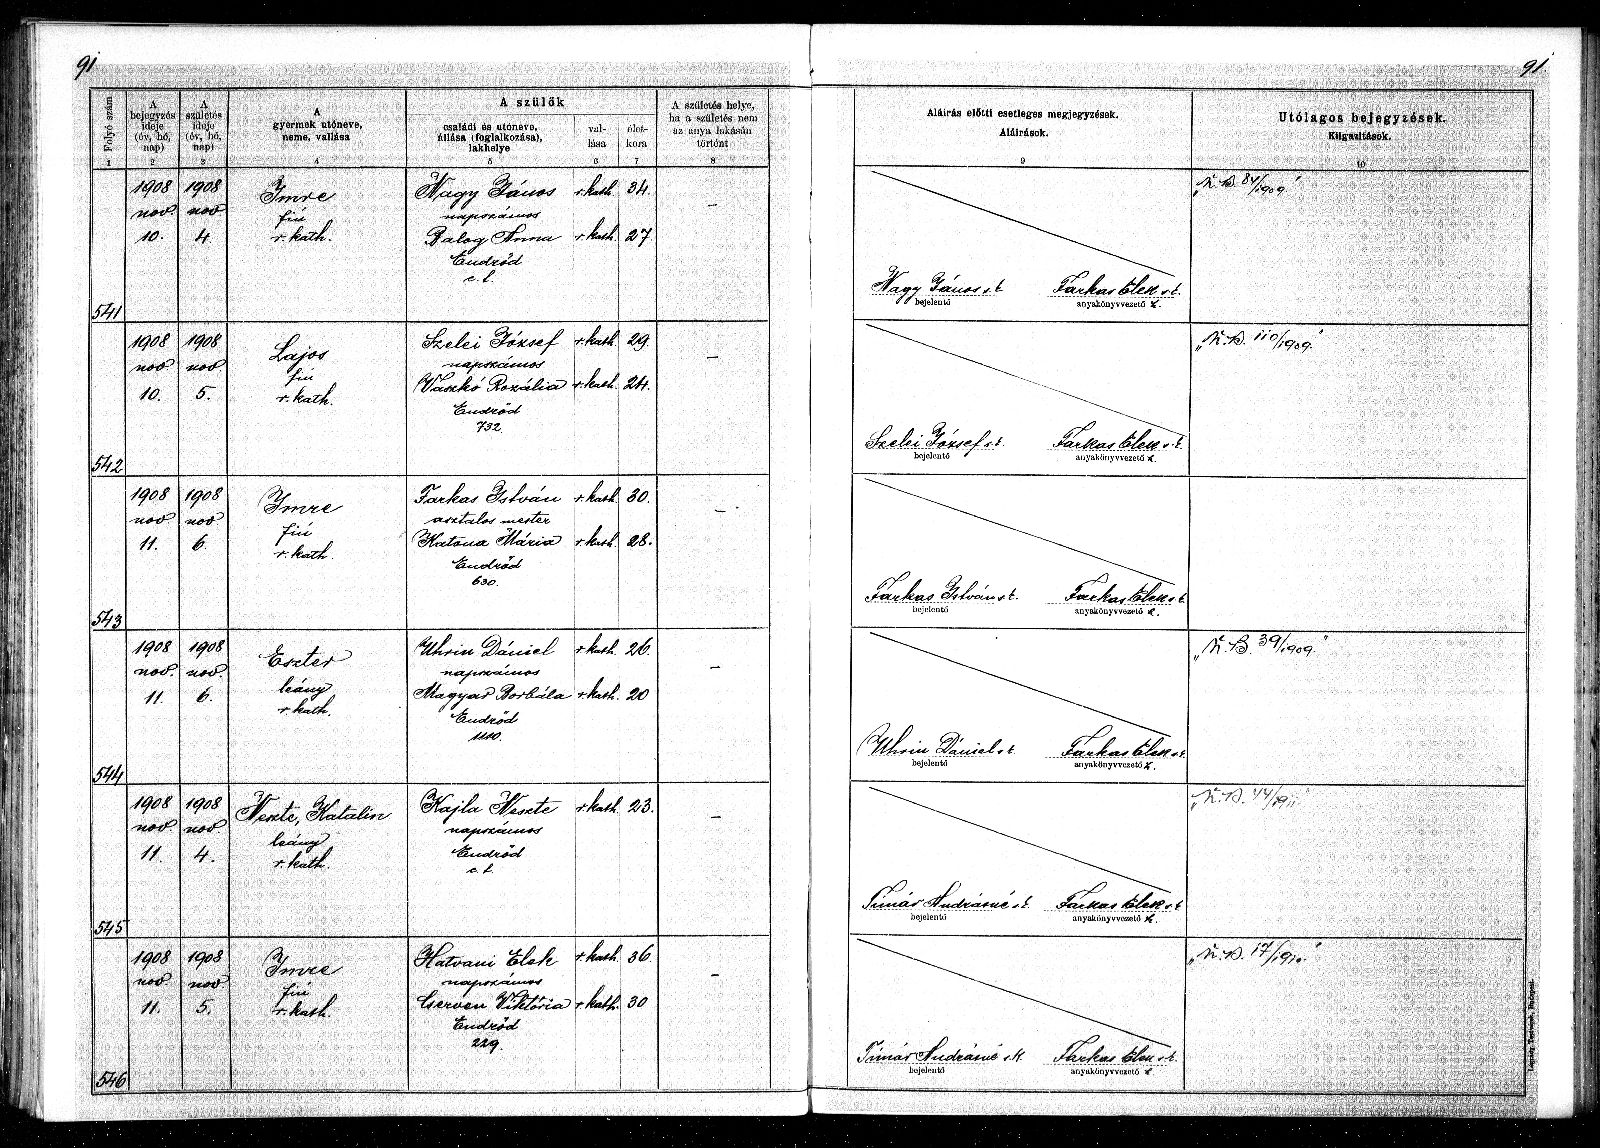 91
91.
Folyó szám
A bejegyzés ideje (év, hó, nap)
A születés ideje (év, hó, nap)
A gyermek utóneve, neme, vallása
A szülők
családi és utóneve, állása (foglalkozása), lakhelye
vallása
életkora
A születés helye, ha a születés nem az anya lakásán történt
Aláírás előtti esetleges megjegyzések.
Aláírások.
Utólagos bejegyzések.
Kiigazítások.
1 2 3 4 5 6 7 8 9 10
1908 1908 Imre Nagy János r. kath. 34.
nov. nov fiú napszámos
10. 4. r. kath. Balog Anna r. kath. 27.
Endrőd
541
Nagy János s.k. Farkas Elek s.k.
bejelentő anyakönyvvezető h.
"N. B. 84/1909."
1908 1908 Lajos Szelei József r. kath. 29.
nov nov fiú napszámos
10. 5. r. kath. Vaskó Rozália r. kath. 24.
Endrőd
732.
542
Szelei József s.k. Farkas Elek s.k.
bejelentő anyakönyvvezető h.
"N. B. 110/1909."
1908 1908 Imre Farkas István r. kath. 30.
nov nov fiú asztalos mester
11. 6. r. kath. Katona Mária r. kath. 28.
Endrőd
630.
543
Farkas István s.k. Farkas Elek s.k.
bejelentő anyakönyvvezető h.
1908 1908 Eszter Uhrin Dániel r. kath. 26.
nov. nov. leány napszámos
11. 6. r. kath. Magyar Borbála r. kath. 20
Endrőd
1110.
544
Uhrin Dániel s.k. Farkas Elek s.k.
bejelentő anyakönyvvezető h.
"N. B. 39/1909."
1908 1908 Neszte, Katalin Kajla Neszte r. kath. 23.
nov. nov. leány napszámos
11. 4. r. kath. Endrőd
545
Timár Andrásné s.k. Farkas Elek s.k.
bejelentő anyakönyvvezető h.
"N. B. 44/1911"
1908 1908 Imre Hatvani Elek r. kath. 36.
nov nov fiú napszámos
11. 5. r. kath. Cserven Viktória r. kath. 30
Endrőd
229.
546
Timár Andrásné s.k. Farkas Elek s.k.
bejelentő anyakönyvvezető h.
"N. B. 17/1910."